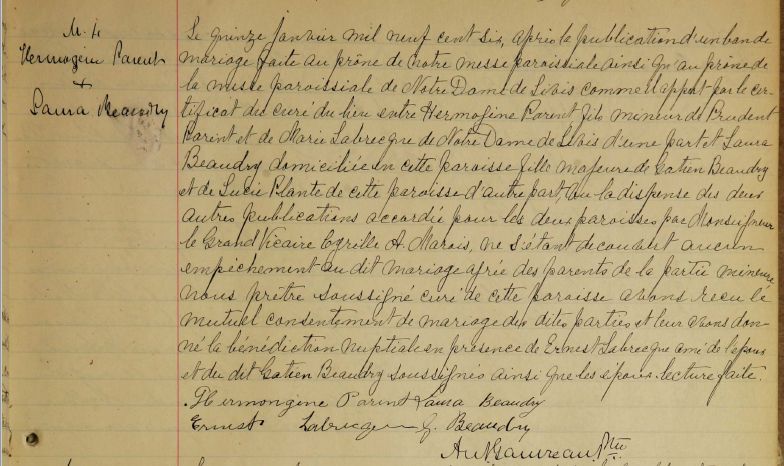 M. 4
Hermogène Parent
+
Laura Beaudry
Le quinze janvier mil neuf cent six, après la publication d'un ban de
mariage faite au prône de notre messe paroissiale ainsi qu'au prône de
la messe paroissiale de Notre Dame de Lévis comme il appert par le cer-
tificat du curé du lieu entre Hermogène Parent fils mineur de Prudent
Parent et de Marie Labrecque de Notre Dame de Lévis d'une part et Laura
Beaudry domiciliée en cette paroisse fille majeure de Gatien Beaudry
et de Lucie Plante de cette paroisse d'autre part, vu la dispense des deux
autres publications accordée pour les deux paroisses par Monseigneur
le Grand Vicaire Cyrille A. Marois, ne s'étant découvert aucun
empêchement au dit mariage des parents de la partie mineure
nous prêtre soussigné curé de cette paroisse avons reçu le
mutuel consentement de mariage des dites parties et leur avons don-
né la bénédiction nuptiale en présence de Ernest Labrecque ami de l'époux
et du dit Gatien Beaudry soussignés ainsi que les époux. Lecture faite.
Hermongine Parent Laura Beaudry
Ernest Labrecque G. Beaudry
Ptre